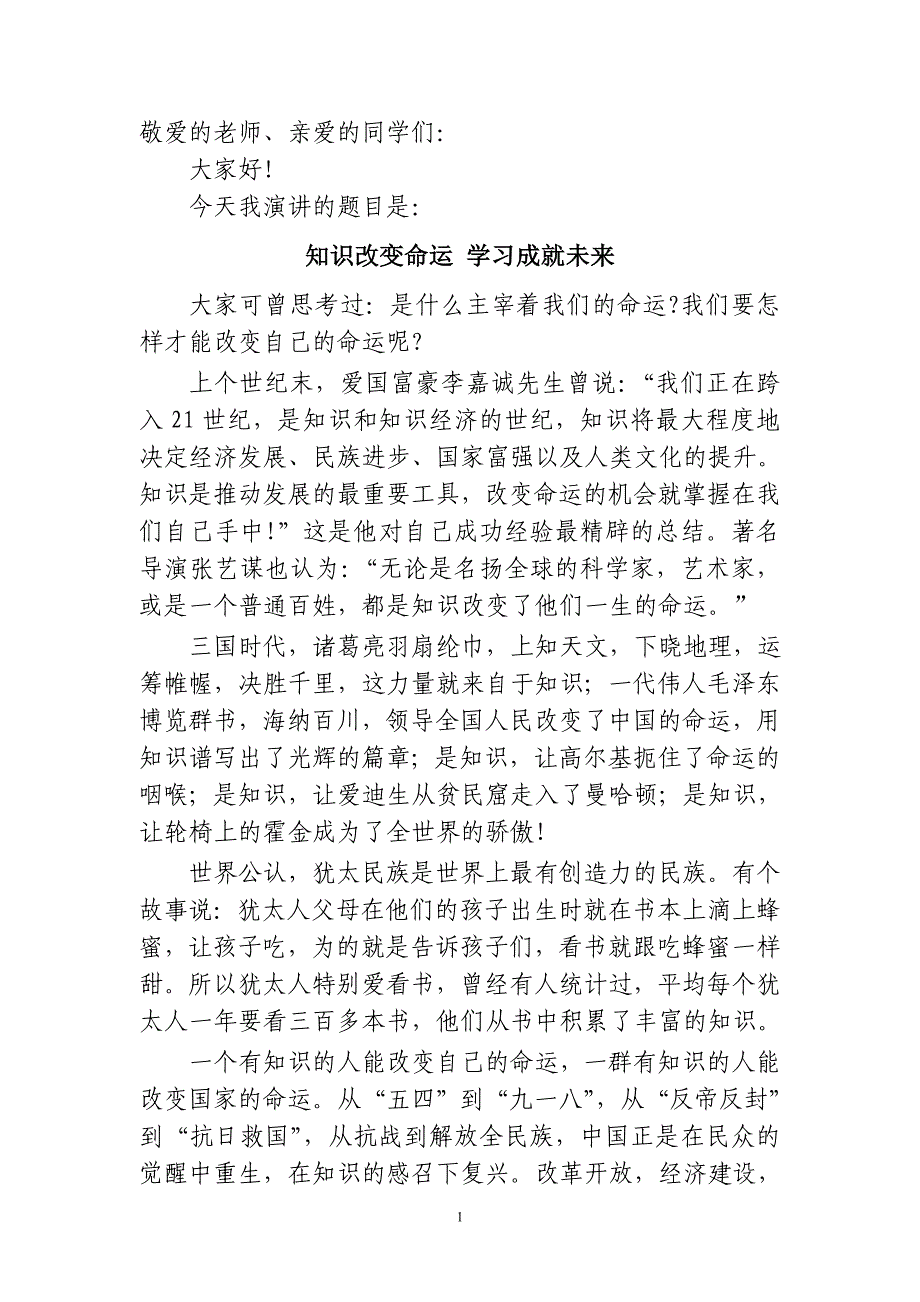 敬爱的老师、亲爱的同学们：
大家好！
今天我演讲的题目是：
知识改变命运 学习成就未来
大家可曾思考过：是什么主宰着我们的命运?我们要怎
样才能改变自己的命运呢？
上个世纪末，爱国富豪李嘉诚先生曾说：“我们正在跨
入 21 世纪，是知识和知识经济的世纪，知识将最大程度地
决定经济发展、民族进步、国家富强以及人类文化的提升。
知识是推动发展的最重要工具，改变命运的机会就掌握在我
们自己手中！”这是他对自己成功经验最精辟的总结。著名
导演张艺谋也认为：“无论是名扬全球的科学家，艺术家，
或是一个普通百姓，都是知识改变了他们一生的命运。”
三国时代，诸葛亮羽扇纶巾，上知天文，下晓地理，运
筹帷幄，决胜千里，这力量就来自于知识；一代伟人毛泽东
博览群书，海纳百川，领导全国人民改变了中国的命运，用
知识谱写出了光辉的篇章；是知识，让高尔基扼住了命运的
咽喉；是知识，让爱迪生从贫民窟走入了曼哈顿；是知识，
让轮椅上的霍金成为了全世界的骄傲！
世界公认，犹太民族是世界上最有创造力的民族。有个
故事说：犹太人父母在他们的孩子出生时就在书本上滴上蜂
蜜，让孩子吃，为的就是告诉孩子们，看书就跟吃蜂蜜一样
甜。所以犹太人特别爱看书，曾经有人统计过，平均每个犹
太人一年要看三百多本书，他们从书中积累了丰富的知识。
一个有知识的人能改变自己的命运，一群有知识的人能
改变国家的命运。从“五四”到“九一八”，从“反帝反封”
到“抗日救国”，从抗战到解放全民族，中国正是在民众的
觉醒中重生，在知识的感召下复兴。改革开放，经济建设，
1